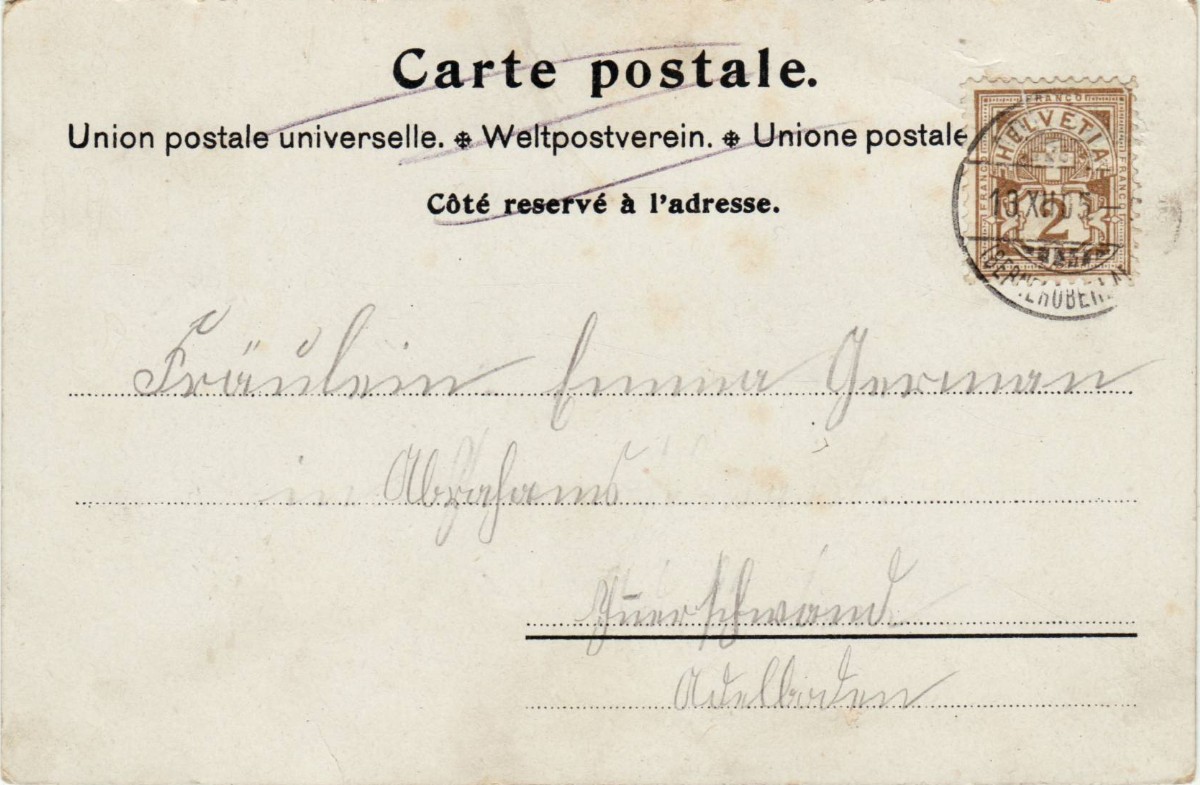 Carte postale.
Union postale universelle. Weltpostverein. Unione postale
Côté reservé à l'adresse.
FRANCO
HELVETIA
FRANCO
FRANCO
2
13.XII.05-
Fräulein Emma German
in Abrahams
schwand
Adelboden